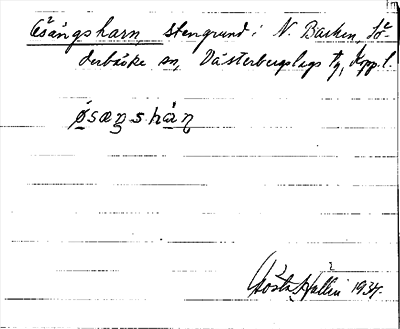 Ösängsharn, stengrund i N. Barken, Sö-
derbärke sn, Västerbergslags tg, Kppl.
ø̱sæŋshár̨
Gösta Hallin 1934.